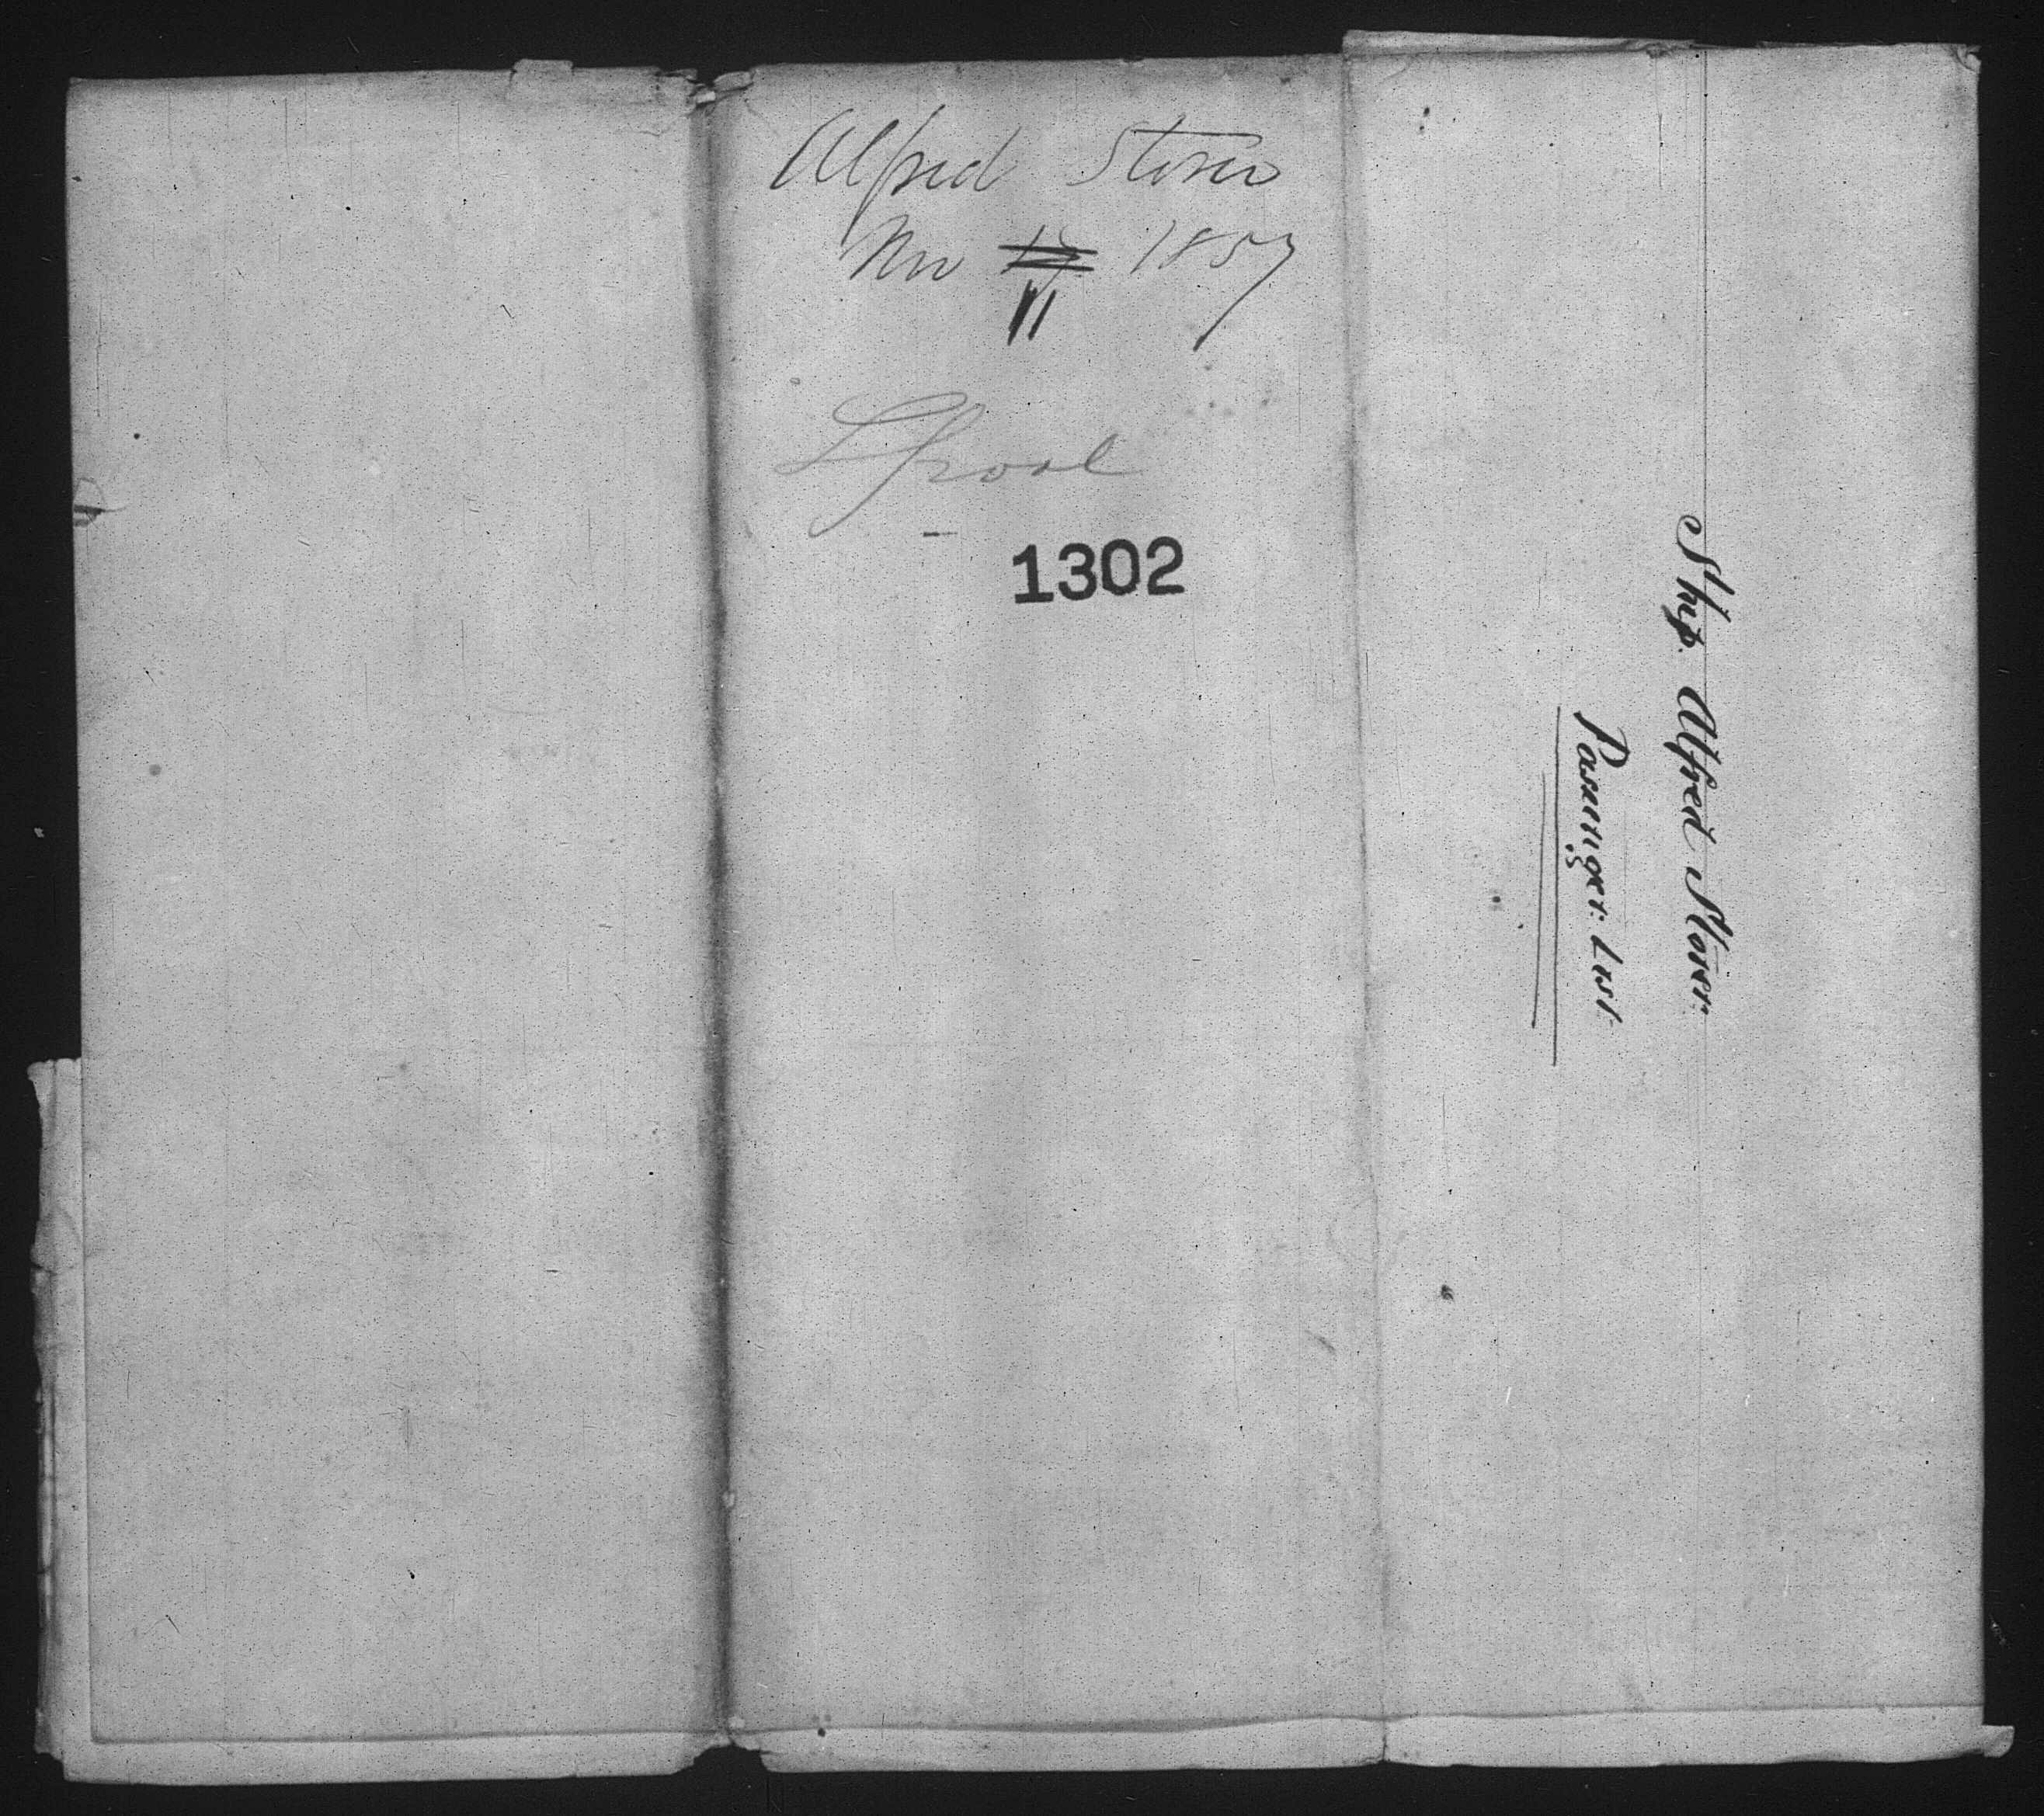 Alfred Storer
Nov 1857
11
Lpool
1302
Ship. Alfred Storer.
Passenger. List.